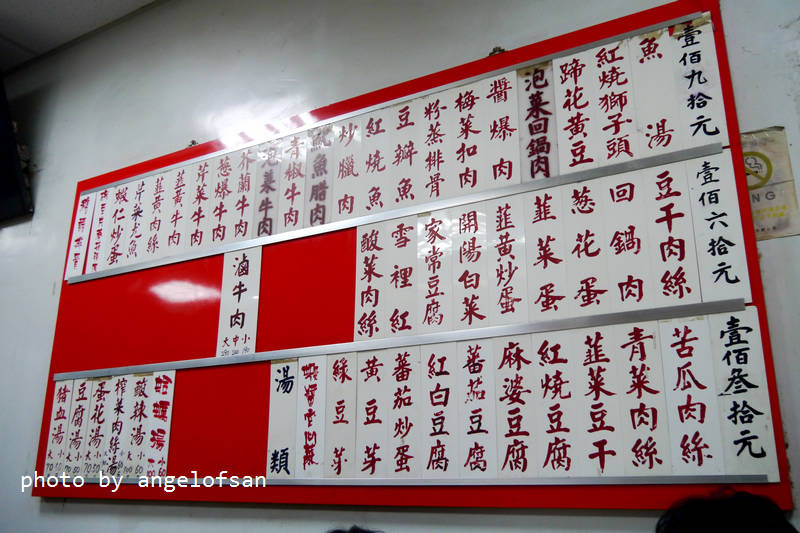 壹佰九拾元
魚湯
紅燒獅子頭
蹄花黃豆
泡菜回鍋肉
醬爆肉
梅菜扣肉
粉蒸排骨
豆瓣魚
紅燒魚
炒臘肉
魷魚腊肉
青椒牛肉
芥蘭牛肉
蔥爆牛肉
芹菜牛肉
韮黃牛肉
韮黃肉絲
芹菜尤魚
蝦仁炒蛋
壹佰六拾元
豆干肉絲
回鍋肉
葱花蛋
韮菜蛋
韮黃炒蛋
開陽白菜
家常豆腐
雪裡紅
酸菜肉絲
滷牛肉
大中小
壹佰叁拾元
苦瓜肉絲
青菜肉絲
韮菜豆干
紅燒豆腐
麻婆豆腐
蕃茄豆腐
紅白豆腐
蕃茄炒蛋
黃豆芽
綠豆芽
湯類
酸辣湯
榨菜肉絲湯
蛋花湯
豆腐湯
豬血湯
photo by angelofsan